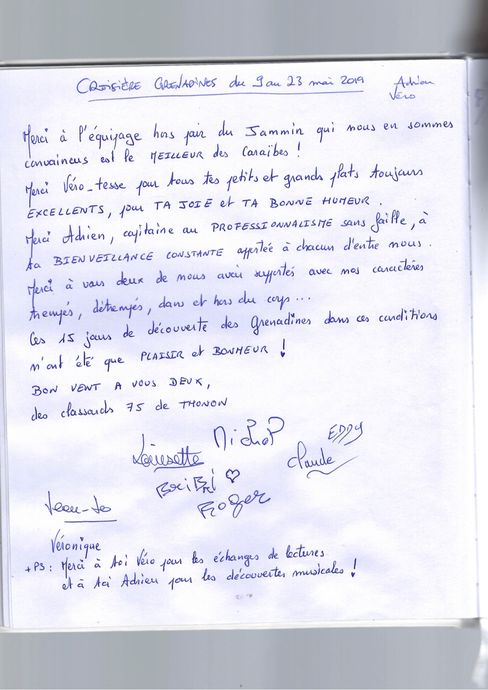 CROISIÈRE GRENADINES du 9 au 23 mai 2019
Adrien
Véro
Merci à l'équipage hors pair du Jammin qui nous en sommes
convaincus est le MEILLEUR des Caraïbes !
Merci Véro-tesse pour tous tes petits et grands plats toujours
EXCELLENTS, pour TA JOIE et TA BONNE HUMEUR.
Merci Adrien, capitaine au PROFESSIONNALISME sans faille, à
ta BIENVEILLANCE CONSTANTE apportée à chacun d'entre nous.
Merci à vous deux de nous avoir supportés avec nos caractères
trempés, détrempés, dans et hors du corps...
Ces 15 jours de découverte des Grenadines dans ces conditions
n'ont été que PLAISIR et BONHEUR !
BON VENT A VOUS DEUX,
des classards 75 de THONON
Louisette Michel EDDY
Claude
BRIBRI
Roger
Jean-Jo
Véronique
+ PS : Merci à toi Véro pour les échanges de lectures
et à toi Adrien pour les découvertes musicales !